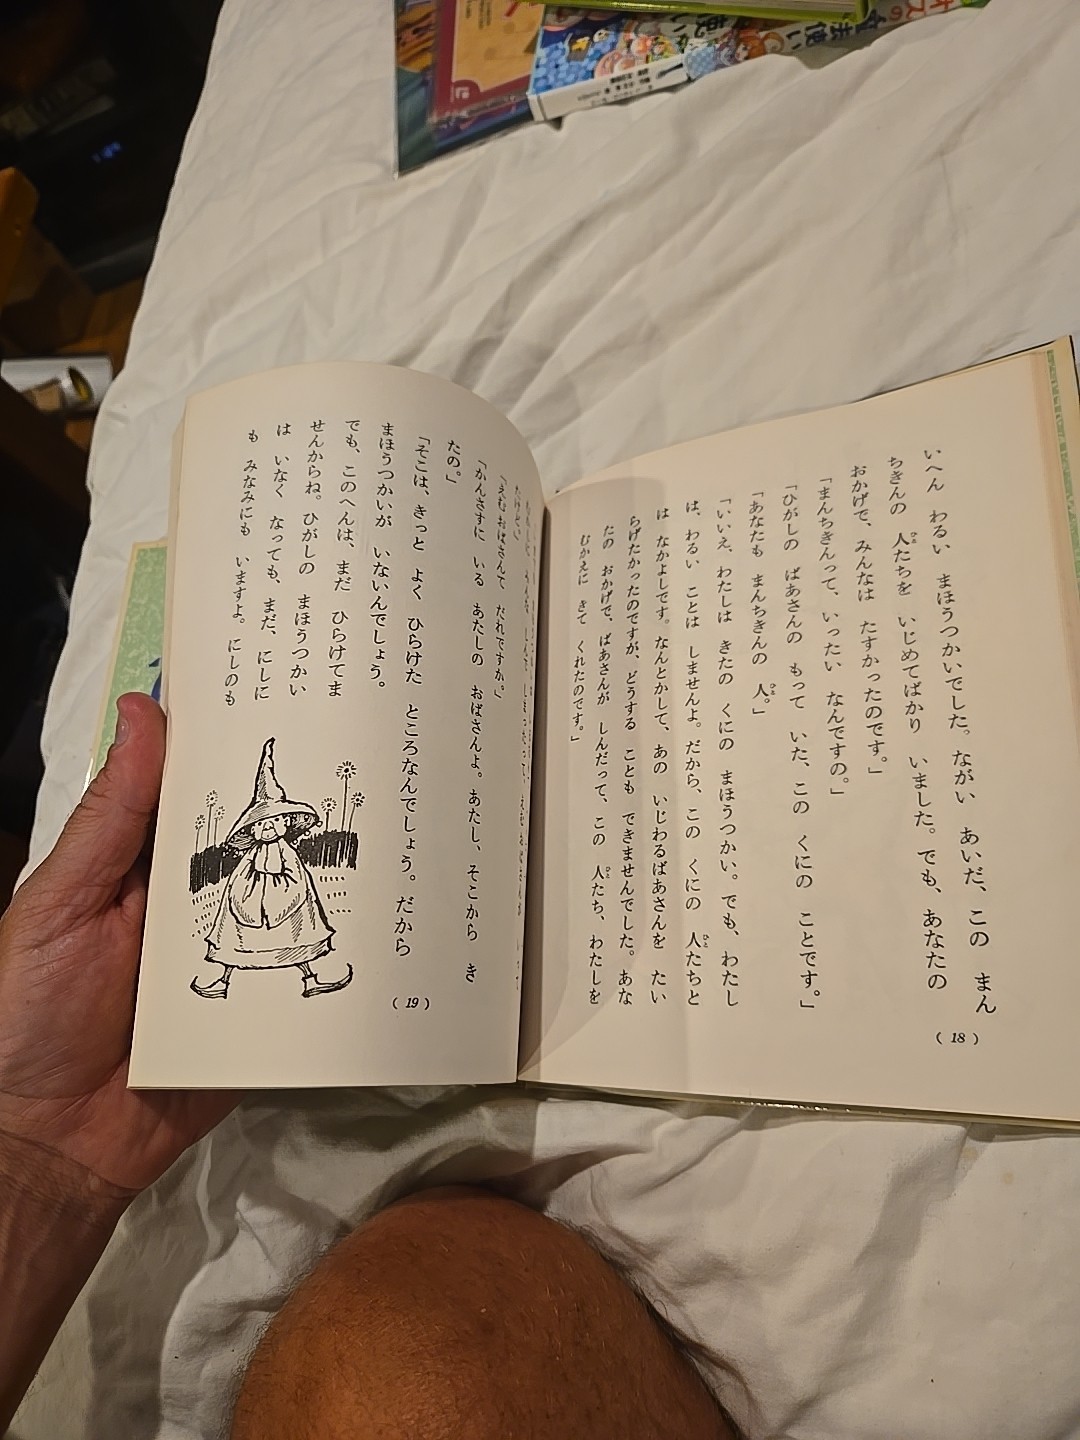 オズの
魔法使い
いへん　わるい　まほうつかいでした。ながい　あいだ、この　まん
ちきんの　人たちを　いじめてばかり　いました。でも、あなたの
おかげで、みんなは　たすかったのです。」
「まんちきんって、いったい　なんですの。」
「ひがしの　ばあさんの　もって　いた、この　くにの　ことです。」
「あなたも　まんちきんの　人。」
「いいえ、わたしは　きたの　くにの　まほうつかい。でも、わたし
は、わるい　ことは　しませんよ。だから、この　くにの　人たちと
は　なかよしです。なんとかして、あの　いじわるばあさんを　たい
らげたかったのですが、どうする　ことも　できませんでした。あな
たの　おかげで、ばあさんが　しんだって、この　人たち、わたしを
むかえに　きて　くれたのです。」
( 18 )
たけど。」
「えむおばさんて　だれですか。」
「かんさすに　いる　あたしの　おばさんよ。あたし、そこから　き
たの。」
「そこは、きっと　よく　ひらけた　ところなんでしょう。だから
まほうつかいが　いないんでしょう。
でも、このへんは、まだ　ひらけてま
せんからね。ひがしの　まほうつかい
は　いなく　なっても、まだ、にしに
も　みなみにも　いますよ。にしのも
( 19 )